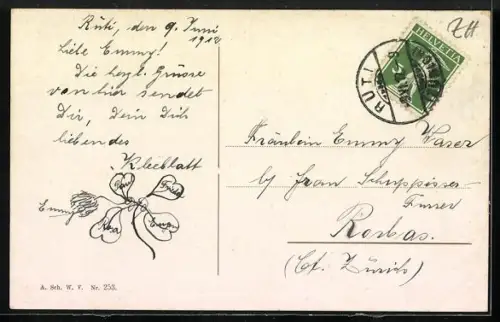 Rüti, den 9. Juni
1912
Liebe Emmy!
Die herzl. Grüsse
von hier sendet
Dir, Dein Dich
liebendes
Kleeblatt
Emmy
Rosa
A. Sch. W. V. Nr. 253.
ZH
HELVETIA
RÜTI
Fräulein Emmy Waser
by Frau Schuppisser-
Furrer
Rorbas.
(Ct. Zürich)